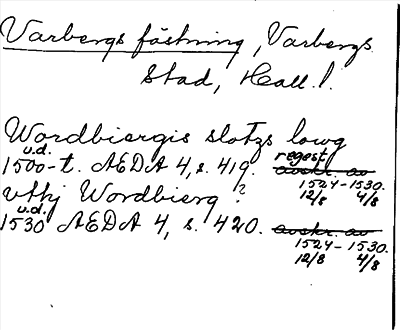 Varbergs fästning, Varbergs
stad, Hall. l.
Wordbiergis slotzs lowg
u.d. regest
1500-t. AEDA 4, s. 419. avskr. av
1524-1530.
12/8 4/8
vthj Wordbierg ?
u.d.
1530 AEDA 4, s. 420. avskr. av
1524-1530.
12/8 4/8